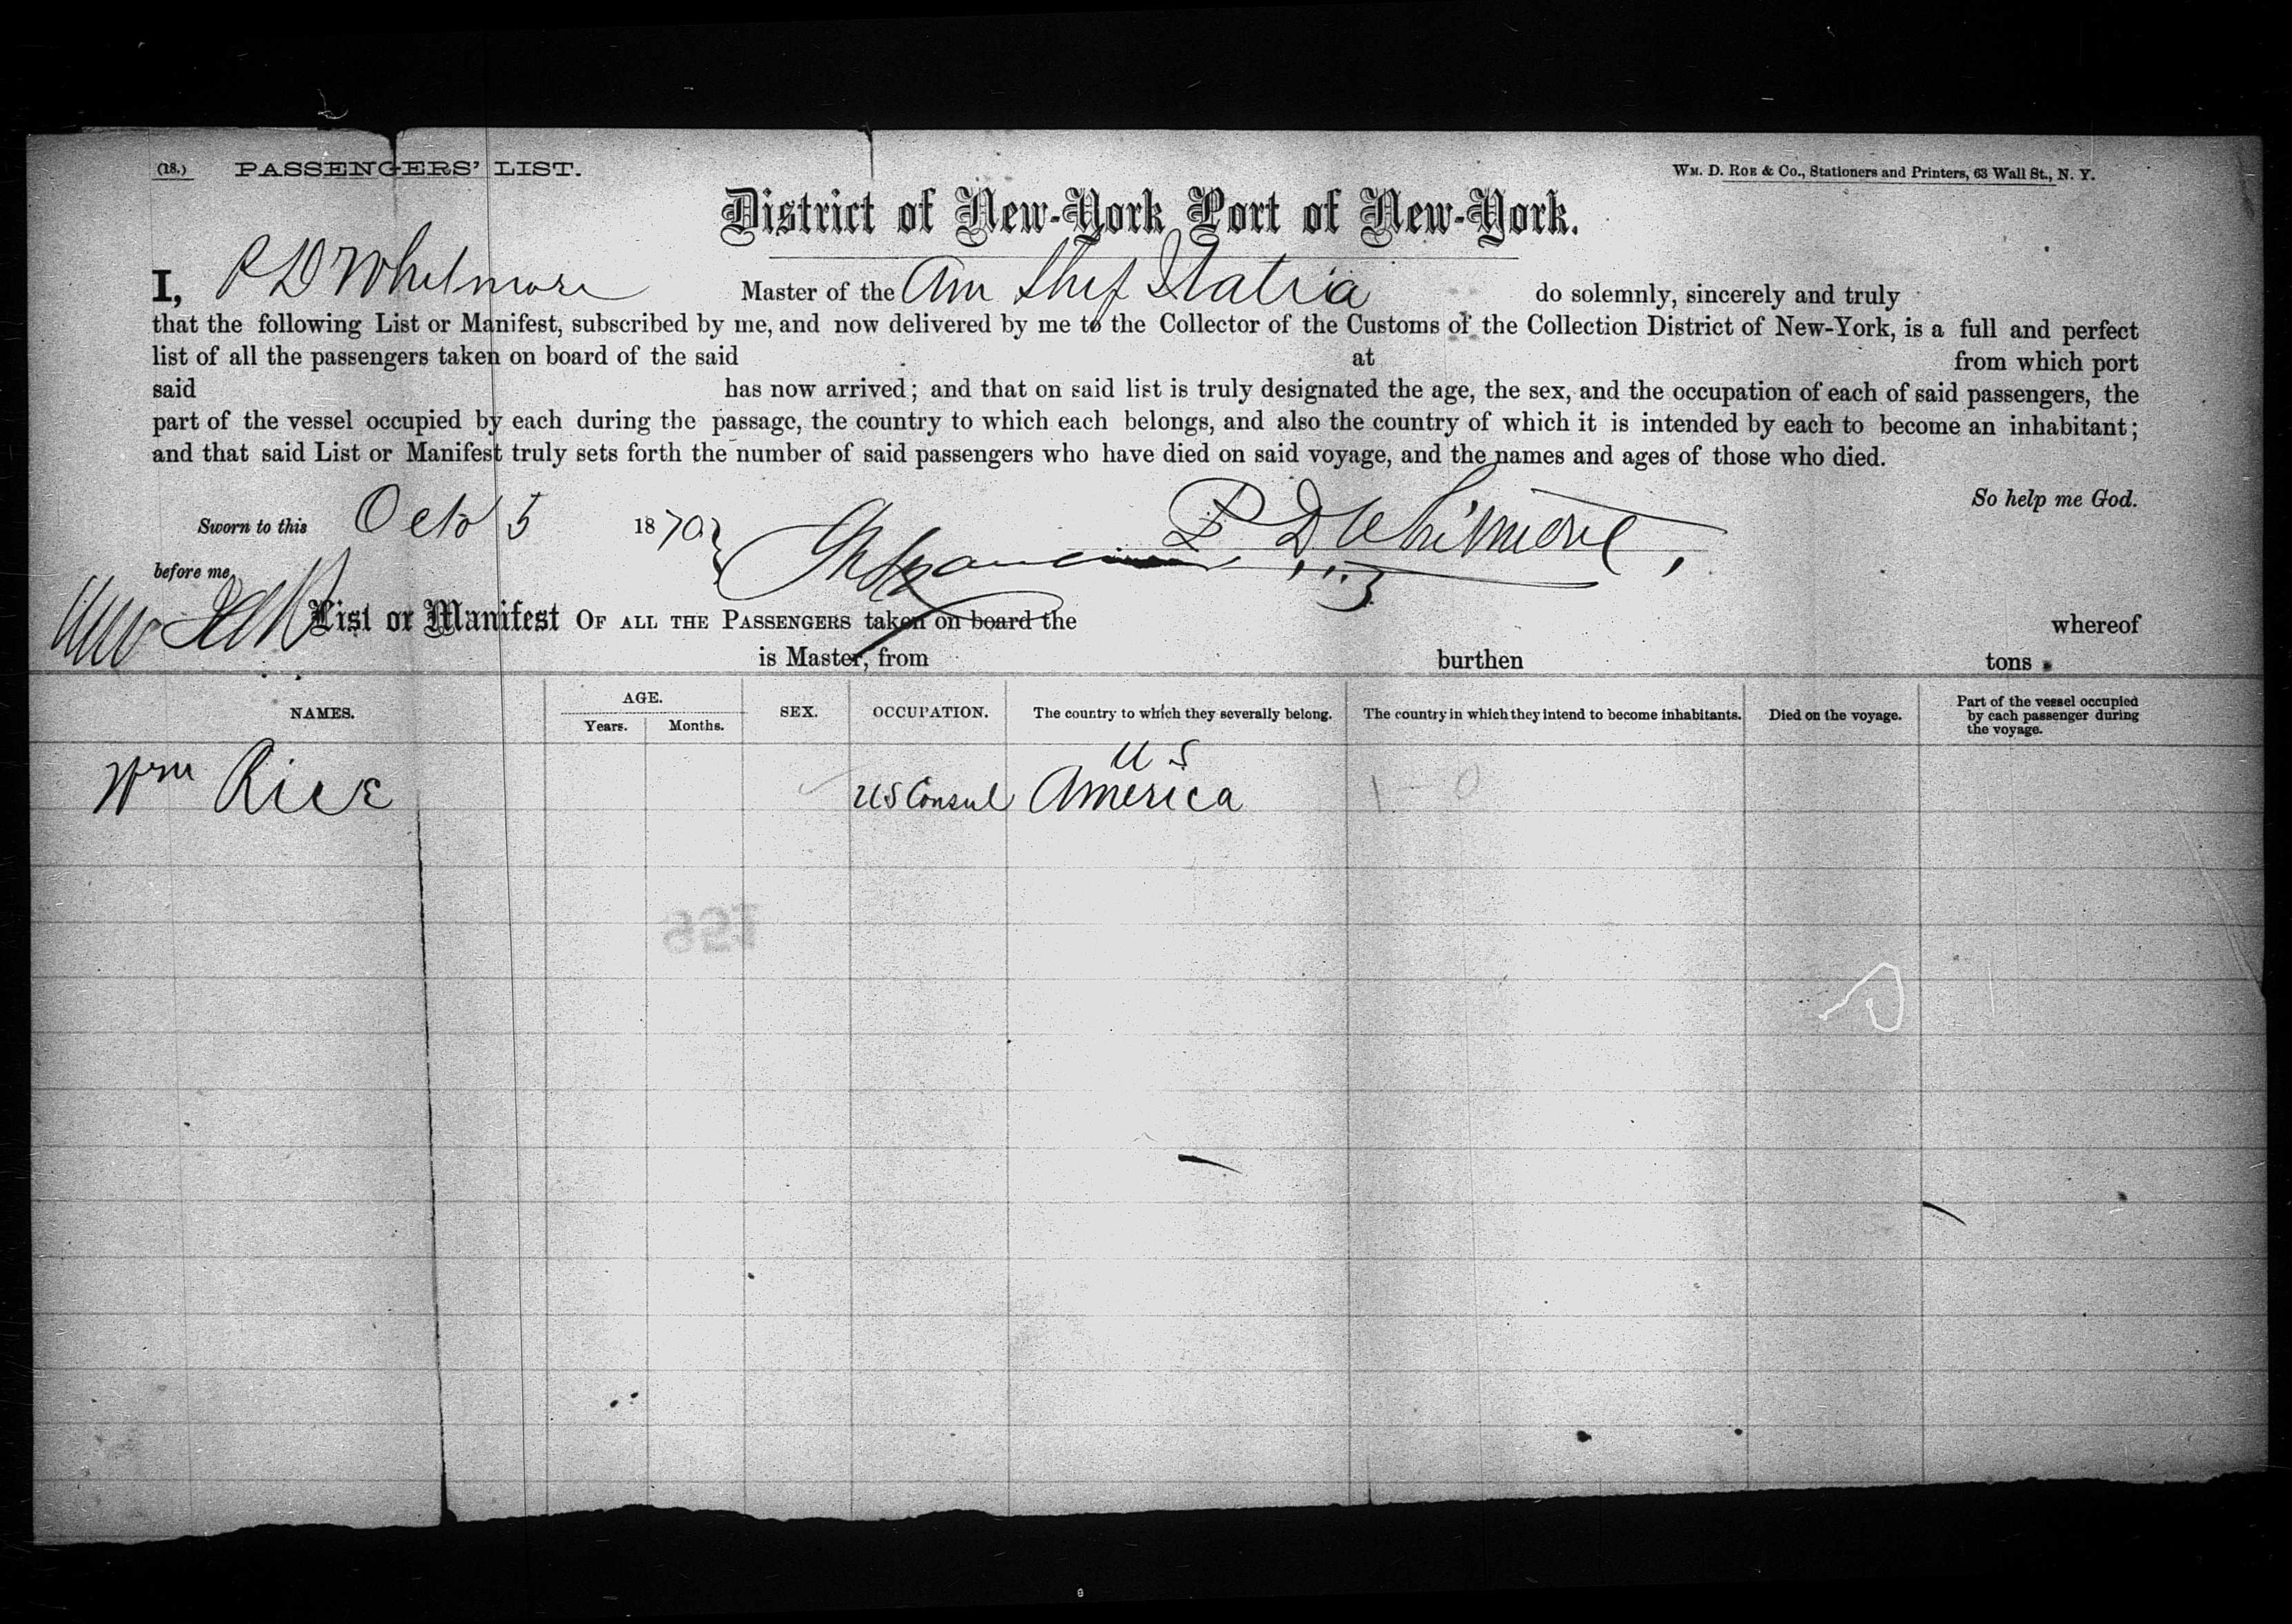 (18.) PASSENGERS' LIST.
WM. D. ROE & CO., Stationers and Printers, 63 Wall St., N. Y.
District of New-York Port of New-York.
I, P D Whitmore Master of the Am Ship Statria do solemnly, sincerely and truly
that the following List or Manifest, subscribed by me, and now delivered by me to the Collector of the Customs of the Collection District of New-York, is a full and perfect
list of all the passengers taken on board of the said at from which port
said has now arrived; and that on said list is truly designated the age, the sex, and the occupation of each of said passengers, the
part of the vessel occupied by each during the passage, the country to which each belongs, and also the country of which it is intended by each to become an inhabitant;
and that said List or Manifest truly sets forth the number of said passengers who have died on said voyage, and the names and ages of those who died.
So help me God.
Sworn to this Octo 5 1870 P D Whitmore
before me,
List or Manifest OF ALL THE PASSENGERS taken on board the whereof
is Master, from burthen tons
NAMES. AGE. Years. Months. SEX. OCCUPATION. The country to which they severally belong. The country in which they intend to become inhabitants. Died on the voyage. Part of the vessel occupied by each passenger during the voyage.
Wm Rice US Consul U S America